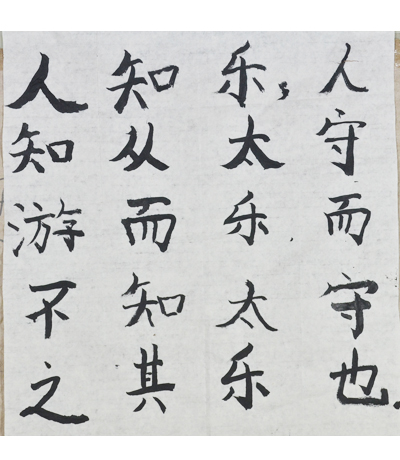 人知乐；人
知从太守
游而乐，而
不知太守
之其乐也.